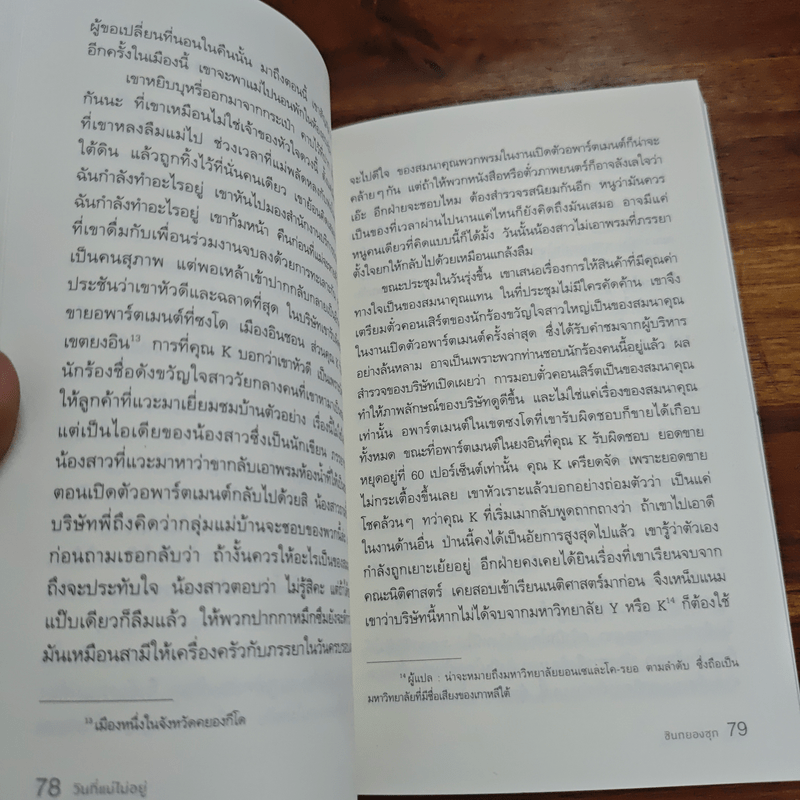 ผู้ขอเปลี่ยนที่นอนในคืนนั้น มาถึงตอนนี้
อีกครั้งในเมืองนี้ เขาจะพาแม่ไปนอนพักในห้อง
เขาหยิบบุหรี่ออกมาจากกระเป๋า คาบไว้
กันนะ ที่เขาเหมือนไม่ใช่เจ้าของหัวใจดวงนี้
ที่เขาหลงลืมแม่ไป ช่วงเวลาที่แม่พลัดหลง
ใต้ดิน แล้วถูกทิ้งไว้ที่นั่นคนเดียว เขาย้อน
ฉันกำลังทำอะไรอยู่ เขาหันไปมองสำนักงาน
ฉันกำลังทำอะไรอยู่ เขาก้มหน้า คืนก่อนที่แม่
ที่เขาดื่มกับเพื่อนร่วมงานจบลงด้วยการทะเลาะ
เป็นคนสุภาพ แต่พอเหล้าเข้าปากกลับกลายเป็น
ประชันว่าเขาหัวดีและฉลาดที่สุด ในบริษัทเขารับ
ขายอพาร์ตเมนต์ที่ซงโด เมืองอินชอน ส่วนคุณ K
เขตยงอิน13 การที่คุณ K บอกว่าเขาหัวดี เป็นเพราะ
นักร้องชื่อดังขวัญใจสาววัยกลางคนที่เขาหามา
ให้ลูกค้าที่แวะมาเยี่ยมชมบ้านตัวอย่าง เรื่องนี้
แต่เป็นไอเดียของน้องสาวซึ่งเป็นนักเขียน
น้องสาวที่แวะมาหาว่าขากลับเอาพรมห้องน้ำที่
ตอนเปิดตัวอพาร์ตเมนต์กลับไปด้วยสิ น้องสาว
บริษัทพี่ถึงคิดว่ากลุ่มแม่บ้านจะชอบของพวกนี้
ก่อนถามเธอกลับว่า ถ้างั้นควรให้อะไรเป็นของ
ถึงจะประทับใจ น้องสาวตอบว่า ไม่รู้สิคะ
แป๊บเดียวก็ลืมแล้ว ให้พวกปากกาหมึกซึมยังจะ
มันเหมือนสามีให้เครื่องครัวกับภรรยาในวันครบรอบ
13 เมืองหนึ่งในจังหวัดคยองกีโด
78 วันที่แม่ไม่อยู่
จะไปดีใจ ของสมนาคุณพวกพรมในงานเปิดตัวอพาร์ตเมนต์ก็น่าจะ
คล้ายๆ กัน แต่ถ้าให้พวกหนังสือหรือตั๋วภาพยนตร์ก็อาจลังเลใจว่า
เอ๊ะ อีกฝ่ายจะชอบไหม ต้องสำรวจรสนิยมกันอีก หนูว่ามันควร
เป็นของที่เวลาผ่านไปนานแค่ไหนก็ยังคิดถึงมันเสมอ อาจมีแค่
หนูคนเดียวที่คิดแบบนี้ก็ได้มั้ง วันนั้นน้องสาวไม่เอาพรมที่ภรรยา
ตั้งใจยกให้กลับไปด้วยเหมือนแกล้งลืม
ขณะประชุมในวันรุ่งขึ้น เขาเสนอเรื่องการให้สินค้าที่มีคุณค่า
ทางใจเป็นของสมนาคุณแทน ในที่ประชุมไม่มีใครคัดค้าน เขาจึง
เตรียมตั๋วคอนเสิร์ตของนักร้องขวัญใจสาวใหญ่เป็นของสมนาคุณ
ในงานเปิดตัวอพาร์ตเมนต์ครั้งล่าสุด ซึ่งได้รับคำชมจากผู้บริหาร
อย่างล้นหลาม อาจเป็นเพราะพวกท่านชอบนักร้องคนนี้อยู่แล้ว ผล
สำรวจของบริษัทเปิดเผยว่า การมอบตั๋วคอนเสิร์ตเป็นของสมนาคุณ
ทำให้ภาพลักษณ์ของบริษัทดูดีขึ้น และไม่ใช่แค่เรื่องของสมนาคุณ
เท่านั้น อพาร์ตเมนต์ในเขตซงโดที่เขารับผิดชอบก็ขายได้เกือบ
ทั้งหมด ขณะที่อพาร์ตเมนต์ในยงอินที่คุณ K รับผิดชอบ ยอดขาย
หยุดอยู่ที่ 60 เปอร์เซ็นต์เท่านั้น คุณ K เครียดจัด เพราะยอดขาย
ไม่กระเตื้องขึ้นเลย เขาหัวเราะแล้วบอกอย่างถ่อมตัวว่า เป็นแค่
โชคล้วนๆ ทว่าคุณ K ที่เริ่มเมากลับพูดถากถางว่า ถ้าเขาไปเอาดี
ในงานด้านอื่น ป่านนี้คงได้เป็นอัยการสูงสุดไปแล้ว เขารู้ว่าตัวเอง
กำลังถูกเยาะเย้ยอยู่ อีกฝ่ายคงเคยได้ยินเรื่องที่เขาเรียนจบจาก
คณะนิติศาสตร์ เคยสอบเข้าเรียนเนติศาสตร์มาก่อน จึงเหน็บแนม
เขาว่าบริษัทนี้หากไม่ได้จบจากมหาวิทยาลัย Y หรือ K14 ก็ต้องใช้
14 ผู้แปล : น่าจะหมายถึงมหาวิทยาลัยยอนเซและโค-รยอ ตามลำดับ ซึ่งถือเป็น
มหาวิทยาลัยที่มีชื่อเสียงของเกาหลีใต้
ชินกยองซุก 79